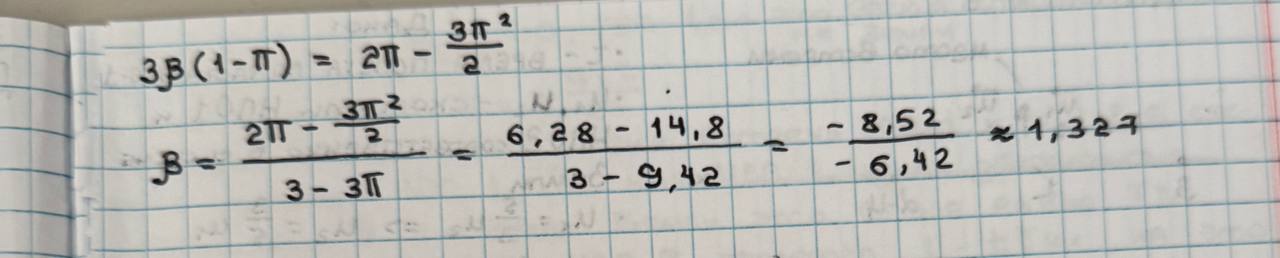 3β(1-π) = 2π - 3π²/2
β = (2π - 3π²/2)/(3 - 3π) = (6,28 - 14,8)/(3 - 9,42) = (-8,52)/(-6,42) ≈ 1,327